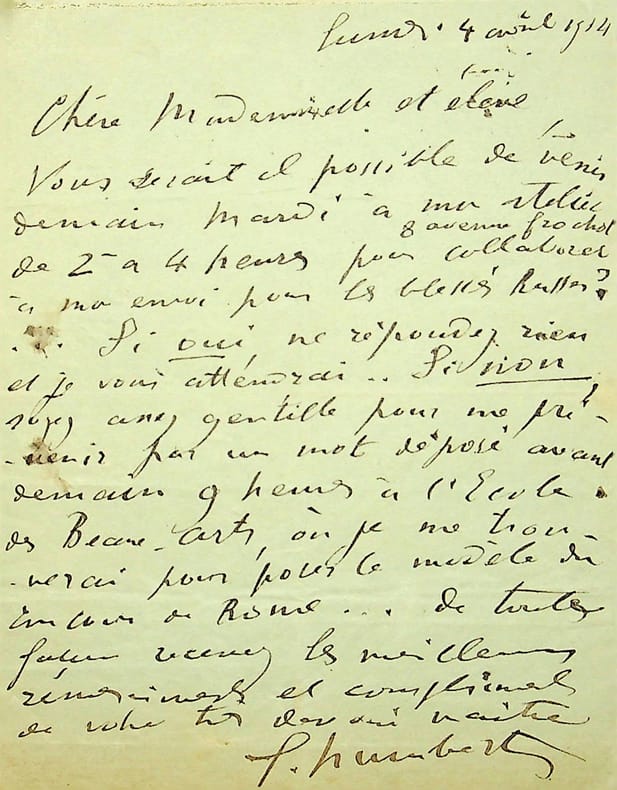 Lundi 4 avril 1914
Chère Mademoiselle et élève
Vous serait il possible de venir
demain Mardi à mon atelier
8 avenue frochot
de 2 à 4 heures pour collaborer
à mon envoi pour les blessés Russes?
... Si oui, ne répondez rien
et je vous attendrai .. Si non,
soyez assez gentille pour me pré-
-venir par un mot déposé avant
demain 9 heures à l'Ecole
des Beaux-arts, où je me trou-
-verai pour poser le modèle du
concours de Rome ... de toutes
façons recevez les meilleurs
remerciements et compliments
de votre très dévoué maître
f. Humbert